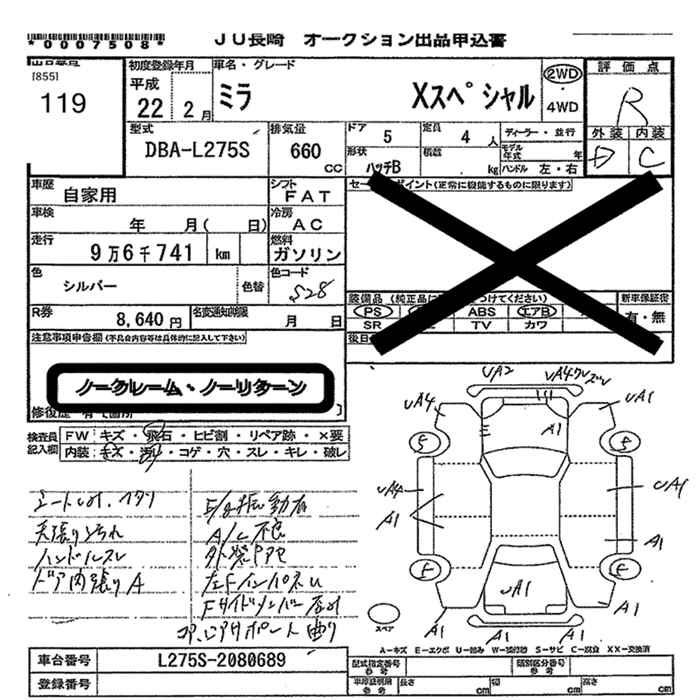 *0007508*
JU長崎 オークション出品申込書
[855]
119
初度登録年月
平成
22年 2月
車名・グレード
ミラ Xスペシャル
2WD
・
4WD
評価点
R
外装 内装
D C
型式
DBA-L275S
排気量
660 CC
ドア 5
定員 4人
ディーラー・並行
形状 ハッチB
積載 kg
モデル年式 年
ハンドル 左・右
車歴 自家用
シフト FAT
車検 年 月( 日)
冷房 AC
走行 9万6千741 km
燃料 ガソリン
色 シルバー 色替
色コード S28
R券 8,640円
名変通知期限 月 日
セー ポイント(正常に機能するものに限ります)
装備品(純正品に つけてください)
新車保証書
PS ABS エアB
有・無
SR TV カワ
後日
注意事項申告欄(不具合内容等は具体的に記入して下さい)
ノークレーム・ノーリターン
修復歴
検査員記入欄
FW:キズ・飛石・ヒビ割・リペア跡・×要
内装:キズ・汚れ・コゲ・穴・スレ・キレ・破レ
天張り汚れ
ハンドルスレ
ドア内張りA
E/g振動有
A/C不良
外装P中色
左FインパネU
コアヒアサポート曲り
UA2
UA4ワレズレ
UA4
UA1
A1
5
5
UA4
UA1
A1
A1
5
5
UA1
A1
A1
A1
スペア
A-キズ E-エクボ U-凹み W-補修跡 S-サビ C-腐食 XX-交換済
車台番号 L275S-2080689
登録番号
型式指定番号 参考
類別区分番号 参考
車庫証明用 参考
長さ cm
幅 cm
高さ cm